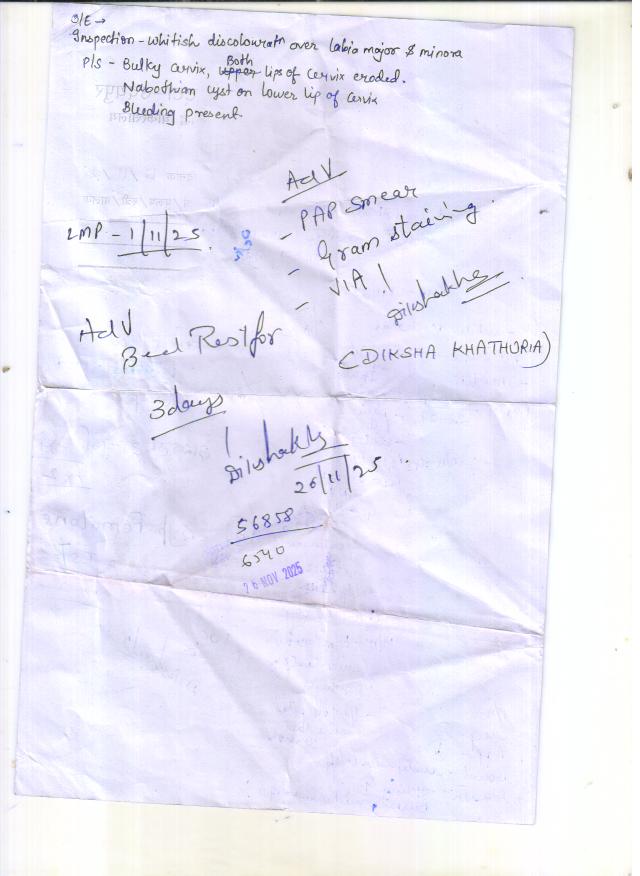 O/E →
Inspection - Whitish discolouratn over labia major & minora
P/S - Bulky cervix, Both lips of cervix eroded.
Nabothian cyst on lower lip of cervix
Bleeding present.
Adv
- PAP smear
- Gram staining.
- VIA
LMP - 1/11/25.
(DIKSHA KHATHURIA)
Adv
Bed Rest for
3 days
26/11/25
56858
6540
26 NOV 2025